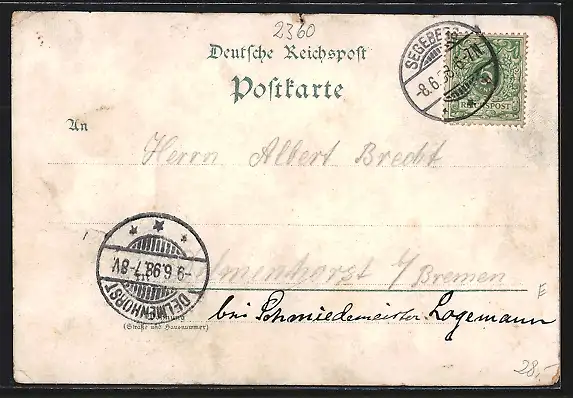 2360
Deutsche Reichspost
Postkarte
SEGEBERG
-8.6.98.6-7N.
REICHSPOST
An
Herrn Albert Brecht
Delmenhorst b/Bremen
-9.6.98.7-8V.
DELMENHORST
Wohnung
(Straße und Hausnummer)
bei Schmiedemeister Logemann
E
28,-